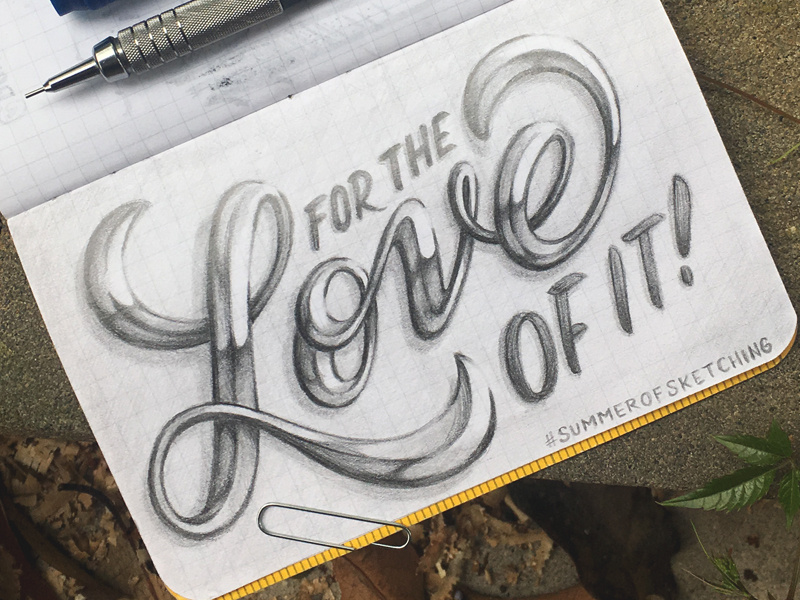 FOR THE
Love
OF IT!
#SUMMEROFSKETCHING